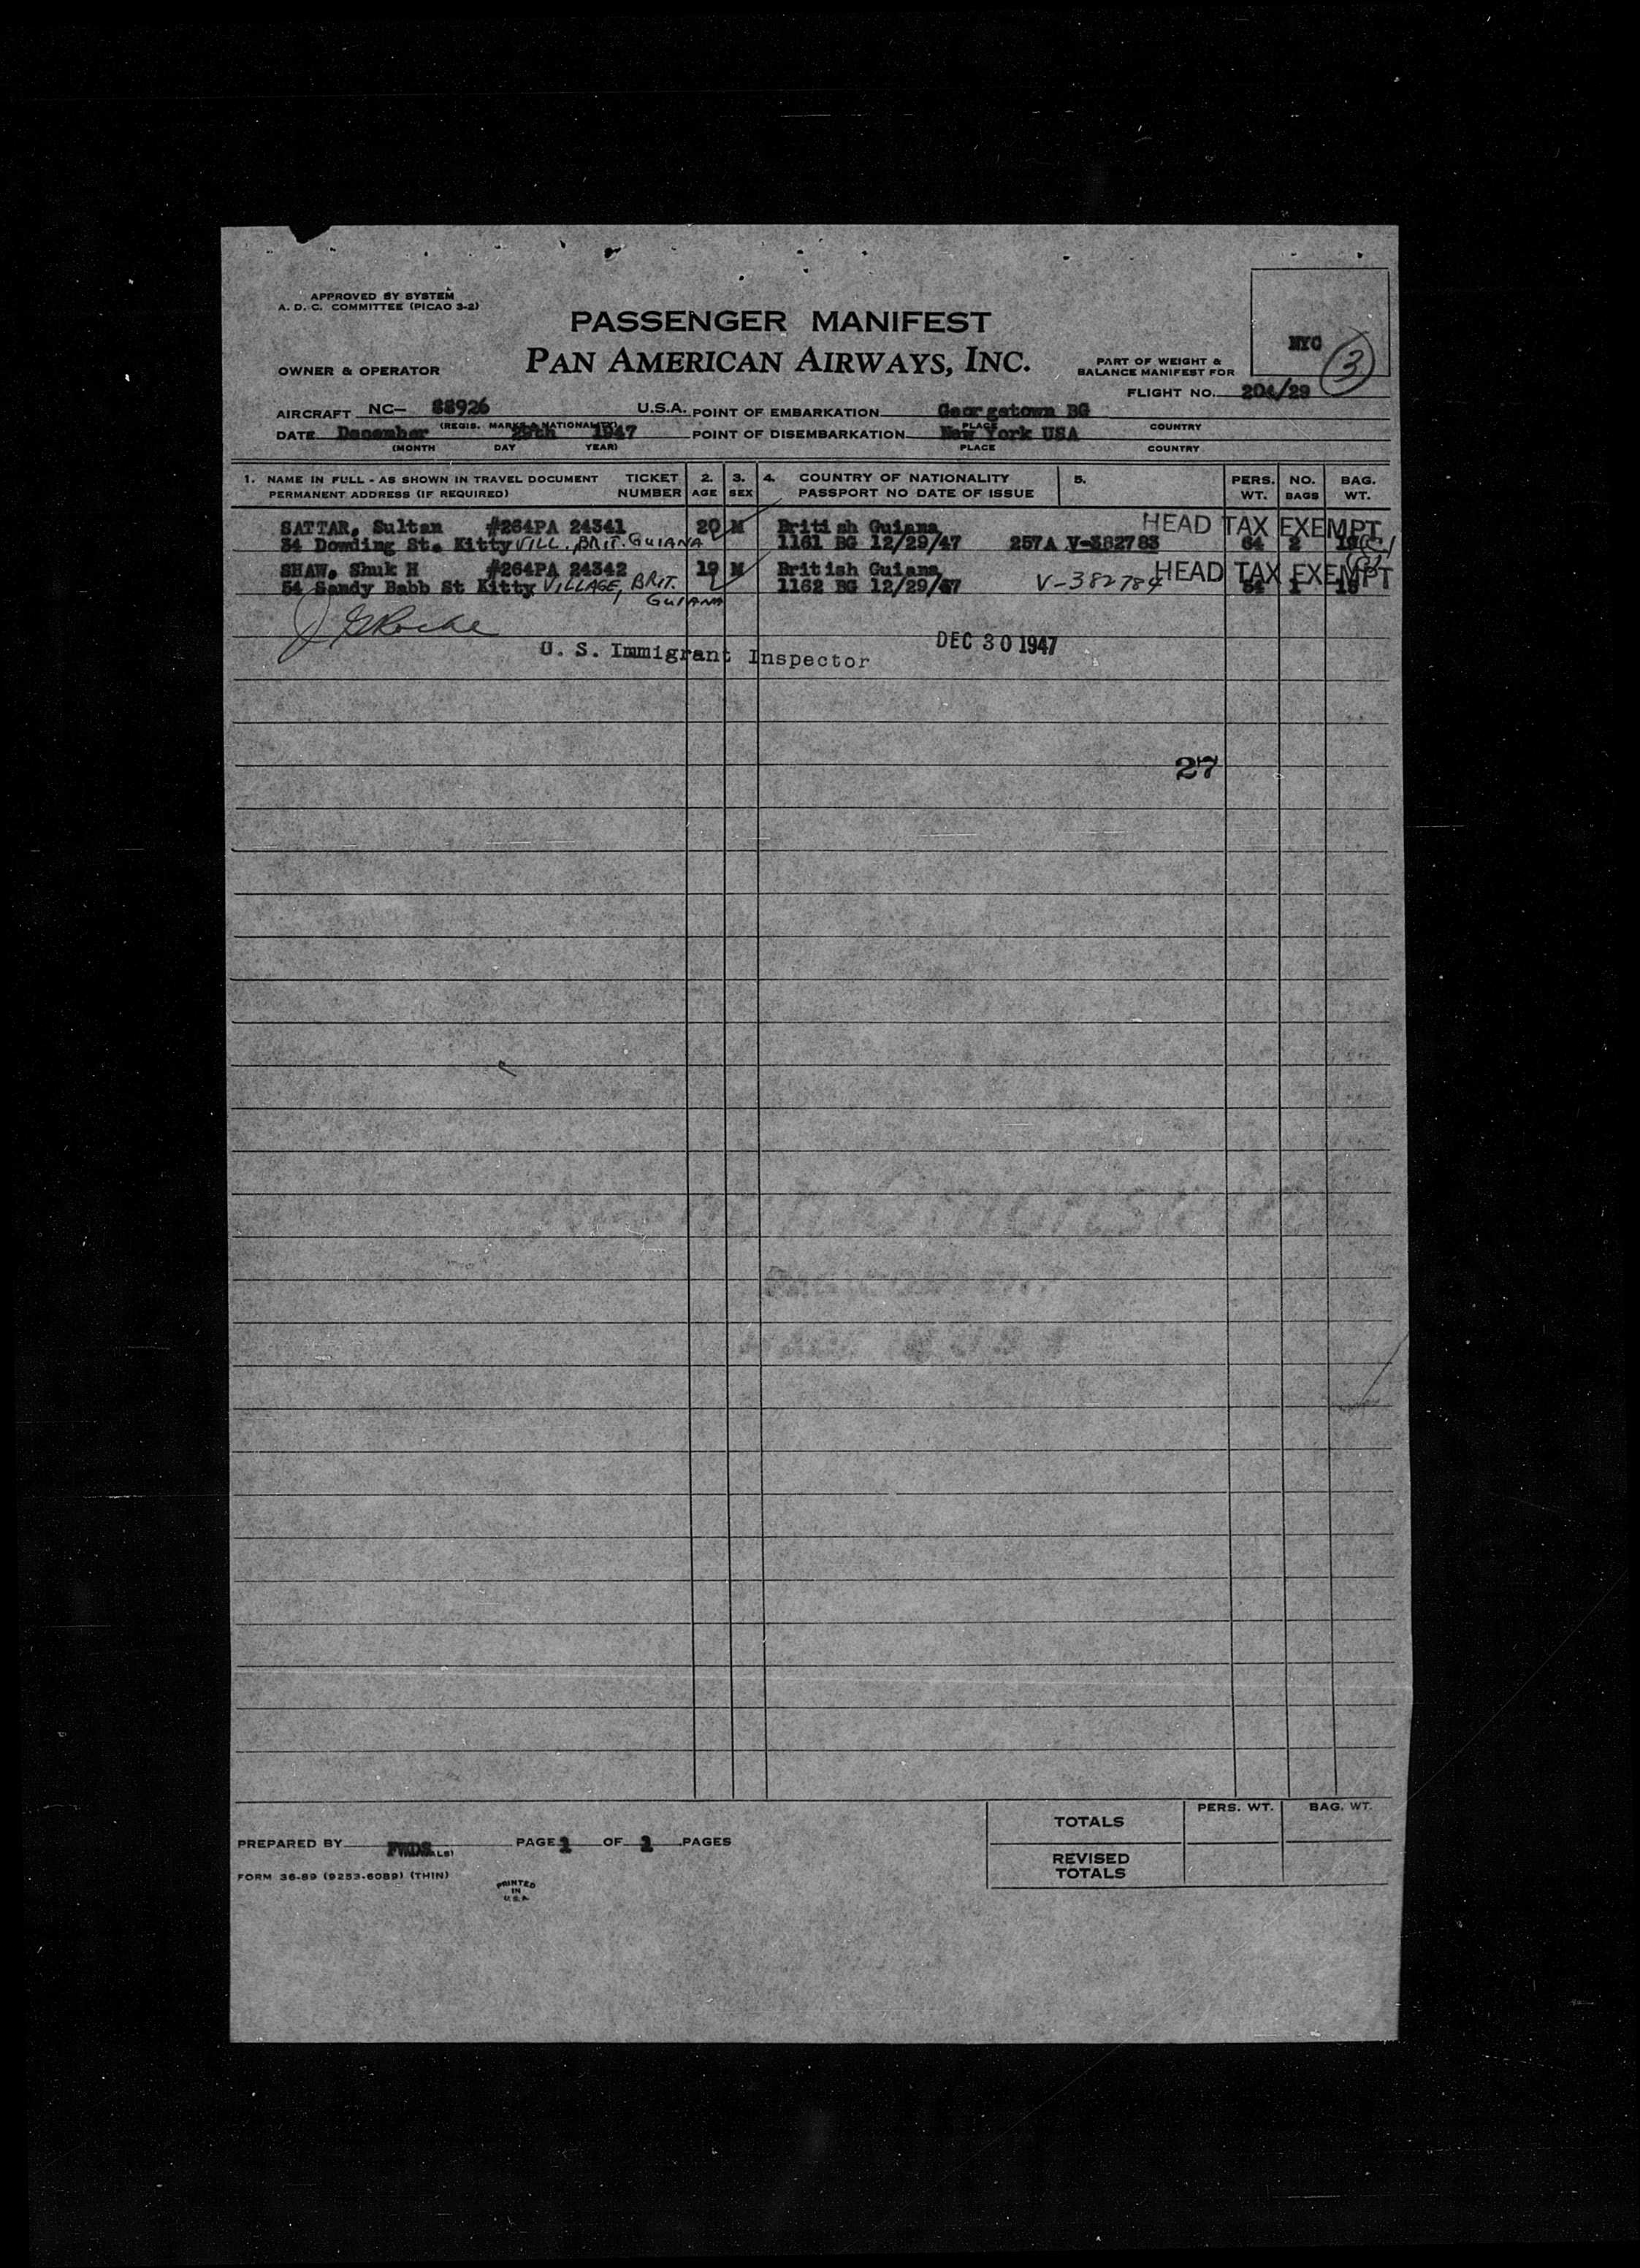 APPROVED BY SYSTEM
A. D. C. COMMITTEE (PICAO 3-2)
PASSENGER MANIFEST
NYC
3
OWNER & OPERATOR
PAN AMERICAN AIRWAYS, INC.
PART OF WEIGHT &
BALANCE MANIFEST FOR
FLIGHT NO. 204/29
AIRCRAFT NC- 88926 U.S.A. POINT OF EMBARKATION Georgetown BG
(REGIS. MARKS & NATIONALITY) PLACE COUNTRY
DATE December 29th 1947 POINT OF DISEMBARKATION New York USA
(MONTH DAY YEAR) PLACE COUNTRY
1. NAME IN FULL - AS SHOWN IN TRAVEL DOCUMENT TICKET 2. 3. 4. COUNTRY OF NATIONALITY 5. PERS. NO. BAG.
PERMANENT ADDRESS (IF REQUIRED) NUMBER AGE SEX PASSPORT NO DATE OF ISSUE WT. BAGS WT.
SATTAR, Sultan #264PA 24341 20 M British Guiana HEAD TAX EXEMPT
34 Dowding St. Kitty VILL. BRIT. GUIANA 1161 BG 12/29/47 257A V-382783 64 2
SHAW, Shuk H #264PA 24342 19 M British Guiana HEAD TAX EXEMPT
54 Sandy Babb St Kitty VILLAGE, BRIT. 1162 BG 12/29/47 V-382784 54 1
GUIANA
U. S. Immigrant Inspector DEC 30 1947
27
TOTALS PERS. WT. BAG. WT.
PREPARED BY FWDS PAGE 1 OF 1 PAGES
REVISED
TOTALS
FORM 36-89 (9253-6089) (THIN)
PRINTED
IN
U.S.A.